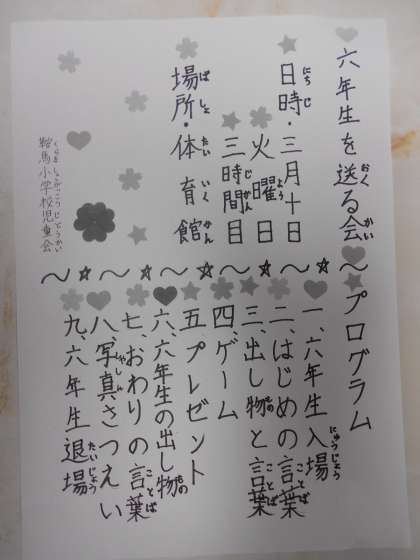 六年生を送る会
日時・三月十日
火曜日
三時間目
場所・体育館
鞍馬小学校児童会
〜プログラム
一、六年生入場
二、はじめの言葉
三、出し物と言葉
四、ゲーム
五、プレゼント
六、六年生の出し物
七、おわりの言葉
八、写真さつえい
九、六年生退場